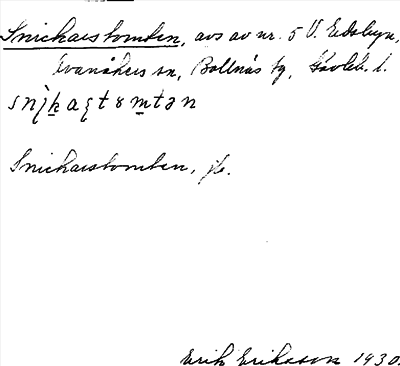 Snickarstomten, avs av nr. 5 V. Edsbyn,
Ovanåkers sn, Bollnäs tg, Gävleb. l.
Snickarstomten, jfr.
Erik Eriksson 1930.